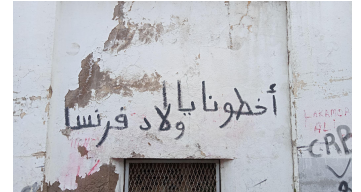 أخطونا يا
ولاد فرنسا
CRB